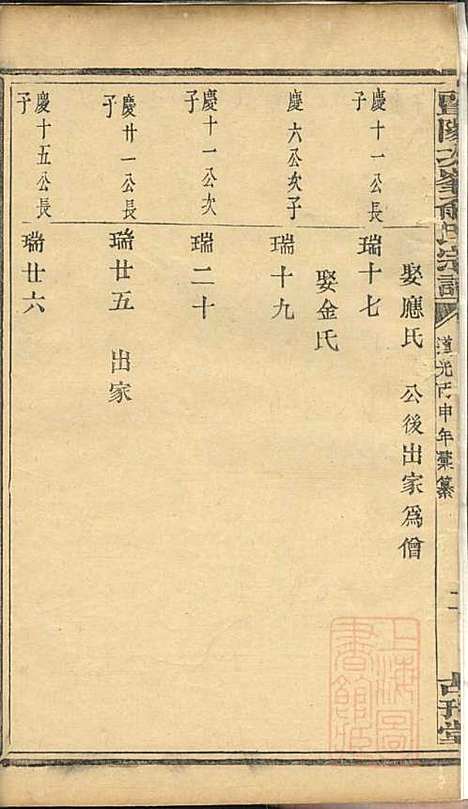 暨陽次峯俞氏宗譜
道光丙申年彙纂
二
娶應氏　公後出家為僧
慶十一公長子
瑞十七
娶金氏
慶六公次子
瑞十九
慶十一公次子
瑞二十
慶廿一公長子
瑞廿五　出家
慶十五公長子
瑞廿六
上海圖書館藏